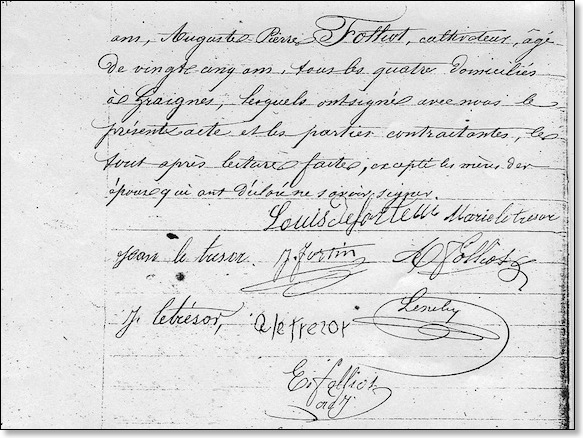 ans, Auguste Pierre Folliot, cultivateur, âgé
de vingt cinq ans, tous les quatre domiciliés
à Graignes, lesquels ont signé avec nous le
présent acte et les parties contractantes, le
tout après lecture faite, excepté les mères des
époux qui ont déclaré ne savoir signer.
Louis Marie le tresor
Jean le tresor. J. fortin A folliot
J. letrésor, A letrezor
E. folliot
adj